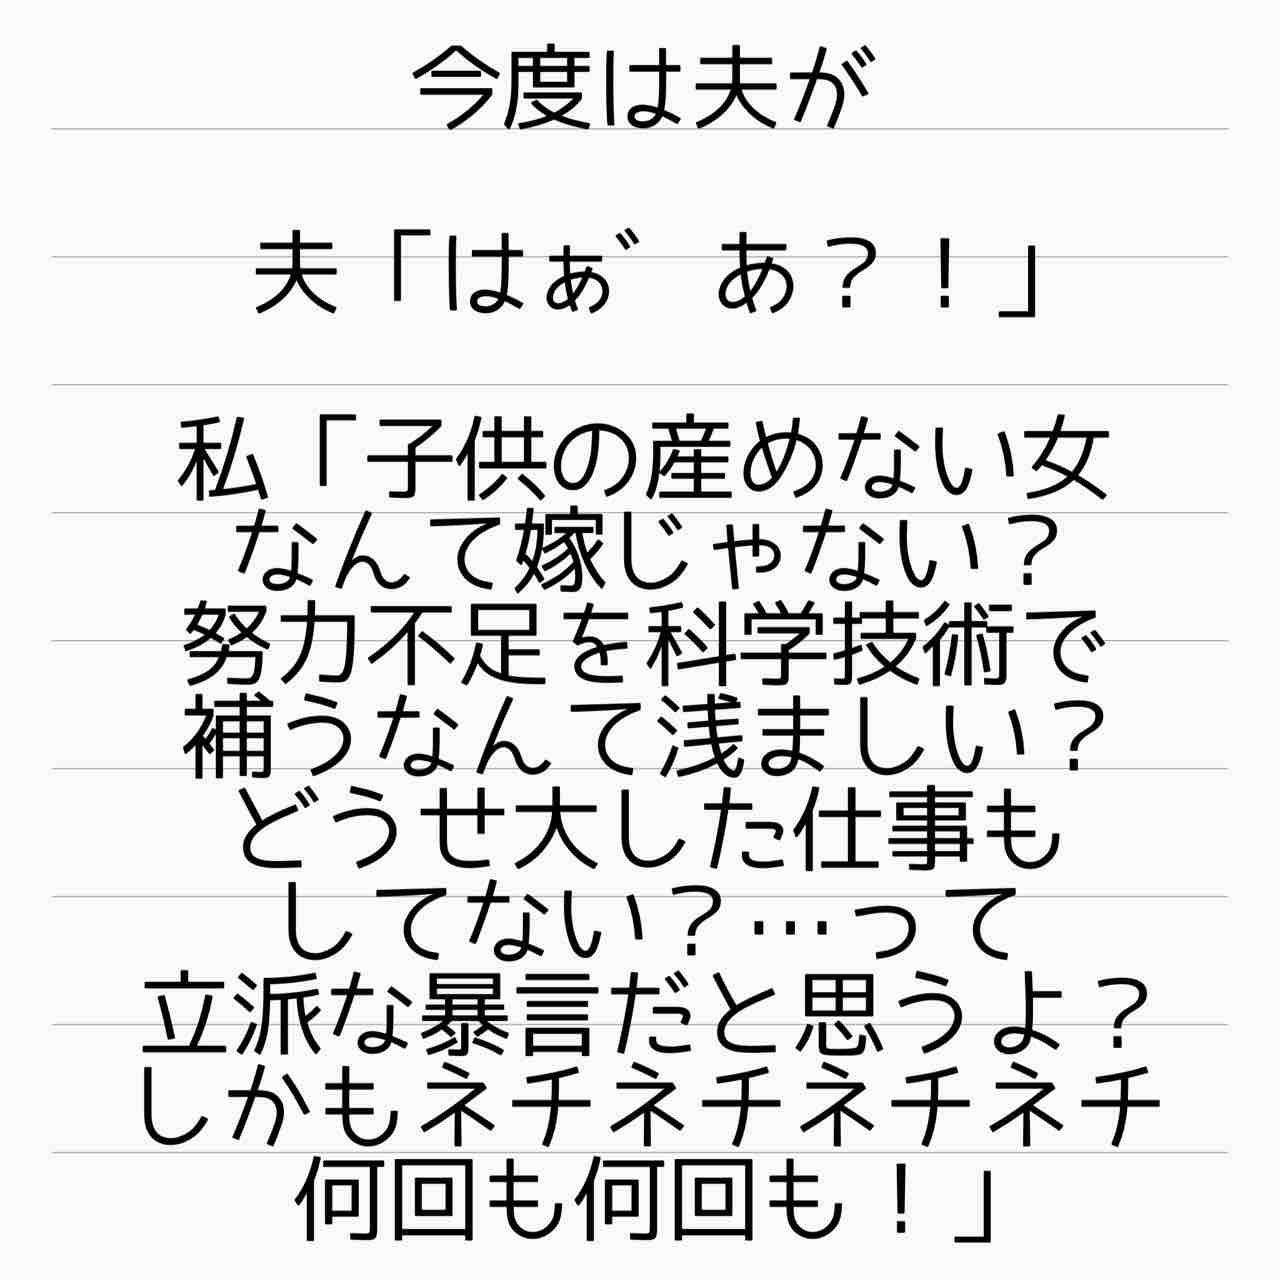 今度は夫が
夫「はぁ゛あ？！」
私「子供の産めない女
なんて嫁じゃない？
努力不足を科学技術で
補うなんて浅ましい？
どうせ大した仕事も
してない？…って
立派な暴言だと思うよ？
しかもネチネチネチネチ
何回も何回も！」